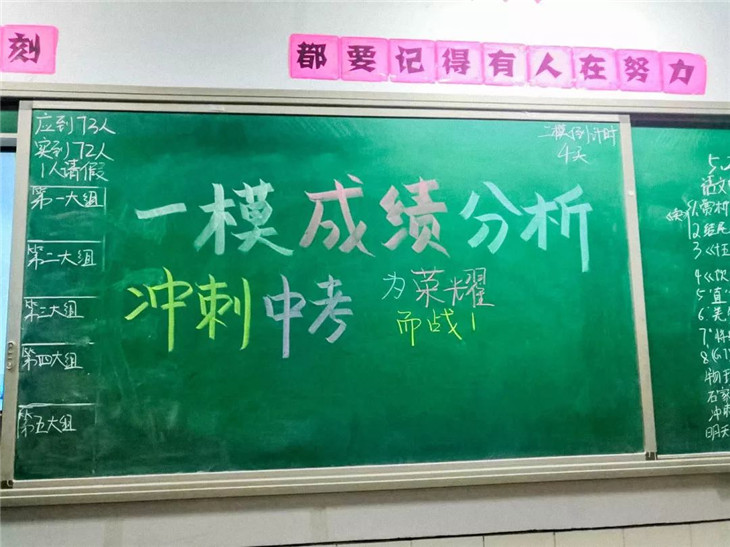 刻
都要记得有人在努力
应到73人
实到72人
1人请假
第一大组
第二大组
第三大组
第四大组
第五大组
二模倒计时
4天
一模成绩分析
冲刺中考
为荣耀
而战!
5.2
语文
1.贾村
2结尾
3
4
5"直"
6
7
8
物
石家
冲刺
明天